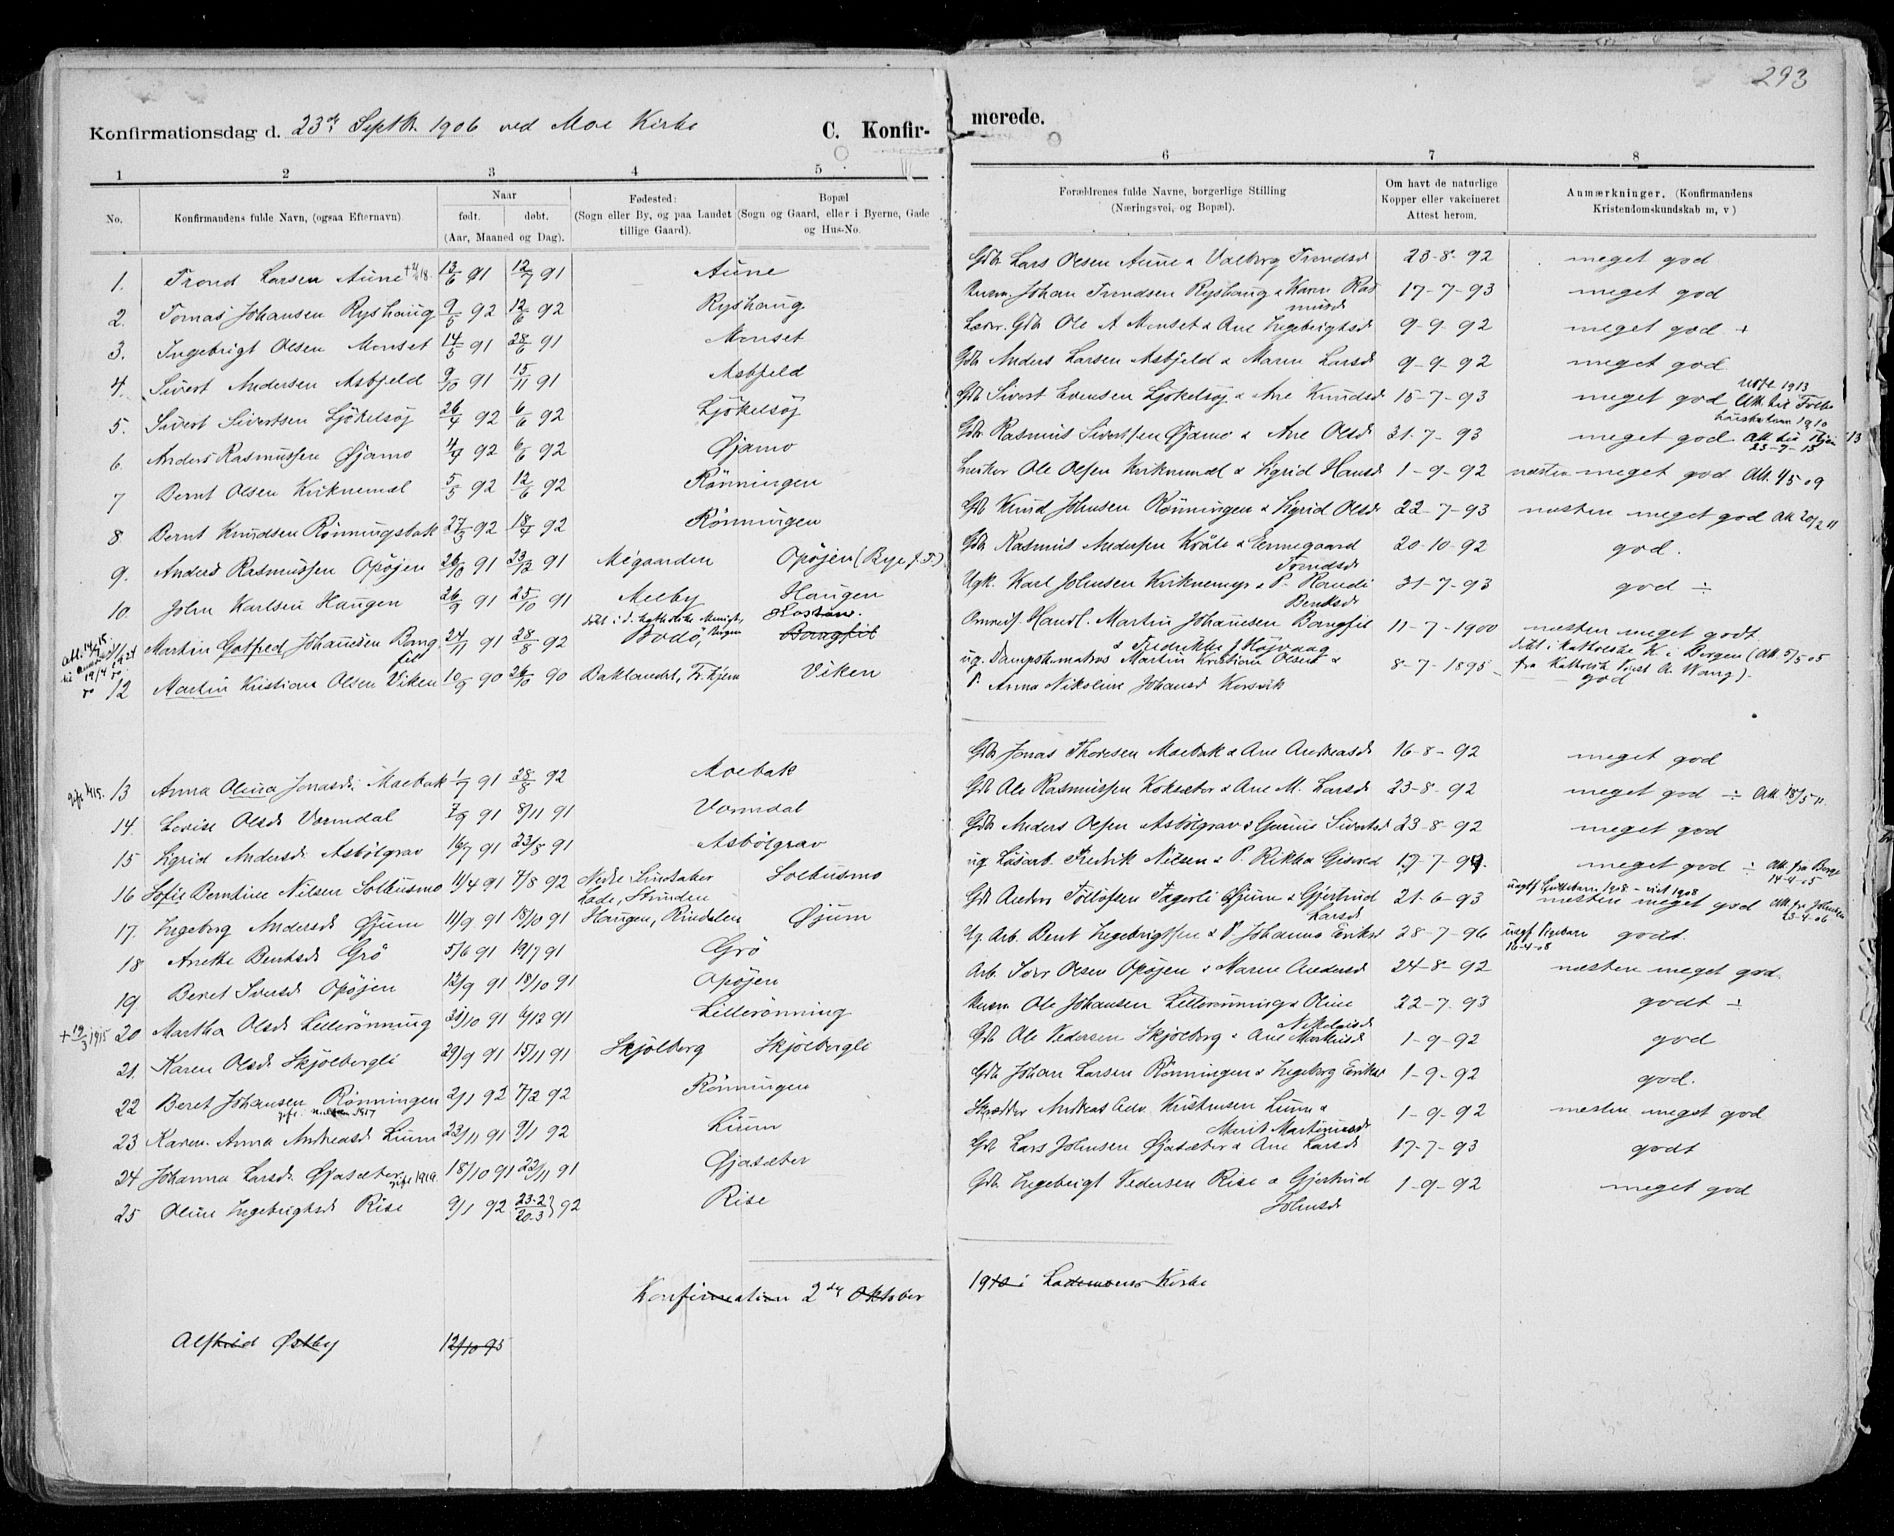 293
Konfirmationsdag d. 23de Septbr. 1906 ved Moe Kirke
C. Konfir-
merede.
1 2 3 4 5 6 7 8
No.
Konfirmandens fulde Navn, (ogsaa Efternavn).
Naar
født. døbt.
(Aar, Maaned og Dag).
Fødested:
(Sogn eller By, og paa Landet tillige Gaard).
Bopæl
(Sogn og Gaard, eller i Byerne, Gade og Hus-No.
Forældrenes fulde Navne, borgerlige Stilling
(Næringsvei, og Bopæl).
Om havt de naturlige Kopper eller vakcineret Attest herom.
Anmærkninger. (Konfirmandens Kristendomskundskab m, v)
1. Trond Larsen Aune 13/6 91 12/7 91 Aune Gdb. Lars Olsen Aune & Valborg Trondsd 23-8-92 meget god
2. Tomas Johansen Ryshaug 9/5 92 12/6 92 Ryshaug Johan Trondsen Ryshaug & Karen Rasmusd 17-7-93 meget god
3. Ingebrigt Olsen Monset 14/5 91 28/6 91 Monset Gdb Ole A Monset & Ane Ingebrigtsd 9-9-92 meget god +
4. Sivert Andersen Asbjeld 9/10 91 15/11 91 Asbjeld Gdb Anders Larsen Asbjeld & Maren Larsd 9-9-92 meget god
5. Sivert Sivertsen Ljökelsöj 26/4 92 6/6 92 Ljökelsöj Gdb Sivert Evensen Ljökelsöj & Ane Knudsd 15-7-93 meget god
6. Anders Rasmussen Øjamo 4/4 92 6/6 92 Øjamo Gdb. Rasmus Sivertsen Øjamo & Ane Olsd 31-7-93 meget god
7 Bernt Olsen Kirknemdal 5/5 92 12/6 92 Rönningen Ole Olsen Kvikneml & Sigrid Hansd 1-9-92 næsten meget god Att. 4/5 09
8 Bernt Knudsen Rönningsbak 27/3 92 18/4 92 Rönningen Gdb Knud Johnsen Rönningen & Sigrid Olsd 22-7-93 næsten meget god Att 20/2 11
9. Anders Rasmussen Opöjen 26/10 91 23/12 91 Megaarden Opöjen Gdb Rasmus Andersen & Trondsd 20-10-92 god.
10. John Karlsen Haugen 26/9 91 25/10 91 Melby Haugen Ugk. Karl Johnsen & P. Randi Bentsd 31-7-93 god ÷
Martin Gotfred Johansen Bangfil 24/11 91 28/8 92 Bodö, Bangfil Handl. Martin Johansen Bangfil & Fredrikke J Höjvaag 11-7-1900 næsten meget godt.
döbt i katholske K. i Bergen (Att. 5/5 05
12 Martin Kristian Olsen Viken 10/9 90 26/10 90 Baklandet, Tr.hjem Viken ug. Dampsk.matros Martin Kristian Olsen & P. Anna Nikoline Johansd Korsvik 8-7-1895 god
13 Anna Olina Jonasd. Moebak 1/7 91 28/8 92 Moebak Gdb Jonas Thoresen Moebak & Ane Andreasd 16-8-92 meget god
14. Lovise Olsd Vormdal 7/9 91 8/11 91 Vormdal Gdb Ole Rasmussen Koksæter & Ane M. Larsd 23-8-92 meget god ÷ Att. 18/5 11.
15 Sigrid Andersd. Asbölgrav 16/7 91 23/8 91 Asbölgrav Gdb Anders Olsen Asbölgrav & Sivertsd 23-8-92 meget god
16 Sofie Berntine Nilsen Solbusmo 11/4 91 7/8 92 Lade, Strinden Solbusmo ug. Løsarb. Fredrik Nilsen & P. 17-7-94. meget god ÷
17. Ingeborg Andersd Øjum 14/9 91 18/10 91 Haugen, Rindalen Øjum Gdb Anders Tollefsen Fagerli Øjum & Gjertrud Larsd 21-6-93 næsten meget god
18 Anette Bentsd Grö 5/6 91 19/7 91 Grö Ug. Arb. Bent Ingebrigtsen & P. Johanna Eriksd 28-7-96 godt.
19. Beret Siversd Opöjen 12/9 91 18/10 91 Opöjen Arb. Olsen Opöjen & Maren Andersd 24-8-92 næsten meget god.
20 Martha Olsd Lillerönning 31/10 91 6/12 91 Lillerönning Ole Johansen Lillerönning & Oline Nikolaisd 22-7-93 godt ÷
21. Karen Olsd Skjölbergli 29/9 91 15/11 91 Skjölberg Skjölbergli Gdb Ole Pedersen Skjölberg & Ane Markusd 1-9-92 god
22 Beret Johansen Rönningen 2/1 92 7/2 92 Rönningen Gdb Johan Larsen Rönningen & Ingeborg Eriksd 1-9-92 god.
23 Karen Anna Andreasd Lium 23/11 91 9/1 92 Lium Skrædder Andreas Adv. Kristensen Lium & Marit Martinusd 1-9-92 næsten meget god
24 Johanna Larsd. Øjasæter gift 1919. 18/10 91 22/11 91 Øjasæter Gdb Lars Johnsen Øjasæter & Ane Larsd 17-7-93 godt
25 Oline Ingebrigtsd Rise 9/1 92 23.2/20.3} 92 Rise Gdb. Ingebrigt Pedersen Rise & Gjertrud Johnsd 1-9-92 meget god
Konfirmation 2den Oktober 1910 i Lademoens Kirke
Alfhild Østby 12/10 95